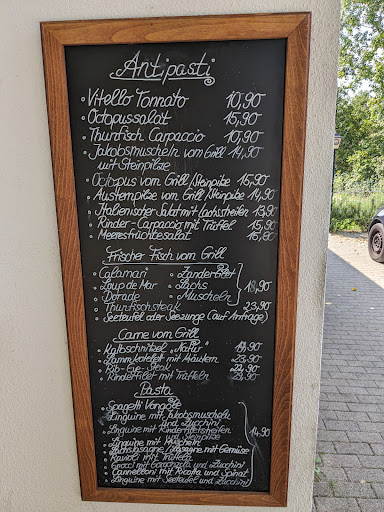 Antipasti
• Vitello Tonnato 10,90
• Octopussalat 15,90
• Thunfisch Carpaccio 10,90
• Jakobsmuscheln vom Grill 14,90
mit Steinpilze
• Octopus vom Grill/Steinpilze 15,90
• Austernpilze vom Grill/Steinpilze 14,90
• Italienischer Salat mit Lachsstreifen 13,90
• Rinder-Carpaccio mit Trüffel 15,90
• Meeresfrüchtesalat 15,90
Frischer Fisch vom Grill
• Calamari • Zanderfilet
• Loup de Mar • Lachs 18,90
• Dorade • Muscheln
• Thunfischsteak 23,90
• Seeteufel oder Seezunge (auf Anfrage)
Carne vom Grill
• Kalbschnitzel "Natur" 19,90
• Lammkotelett mit Kräutern 23,90
• Rib-Eye-Steak 22,90
• Rinderfilet mit Trüffeln 23,90
Pasta
• Spagetti Vongole
• Linguine mit Jakobsmuscheln
und Zucchini
• Linguine mit Rinderfiletstreifen
und Steinpilze
• Linguine mit Muscheln 14,90
• Lachslasagne/Lasagne mit Gemüse
• Ravioli mit Trüffeln
• Gnocci mit Gorgonzola und Zucchini
• Cannelloni mit Ricotta und Spinat
• Linguine mit Seeteufel und Zucchini